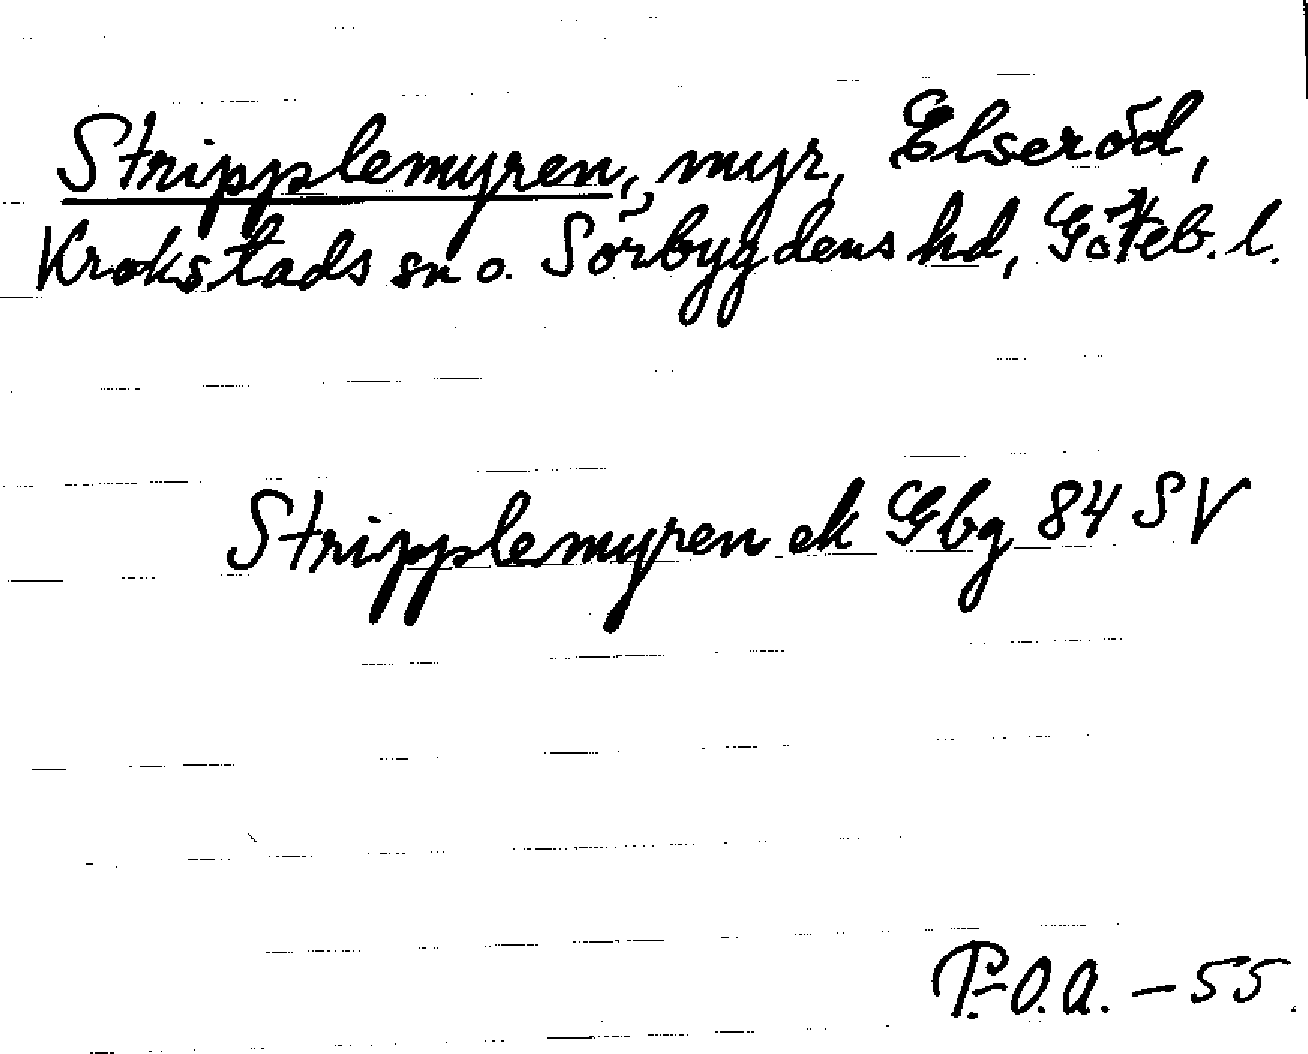 Stripplemyren, myr, Elseröd,
Krokstads sn o. Sörbygdens hd, Göteb. l.
Stripplemyren ek Gbg 84 SV
P.O.A. – 55.